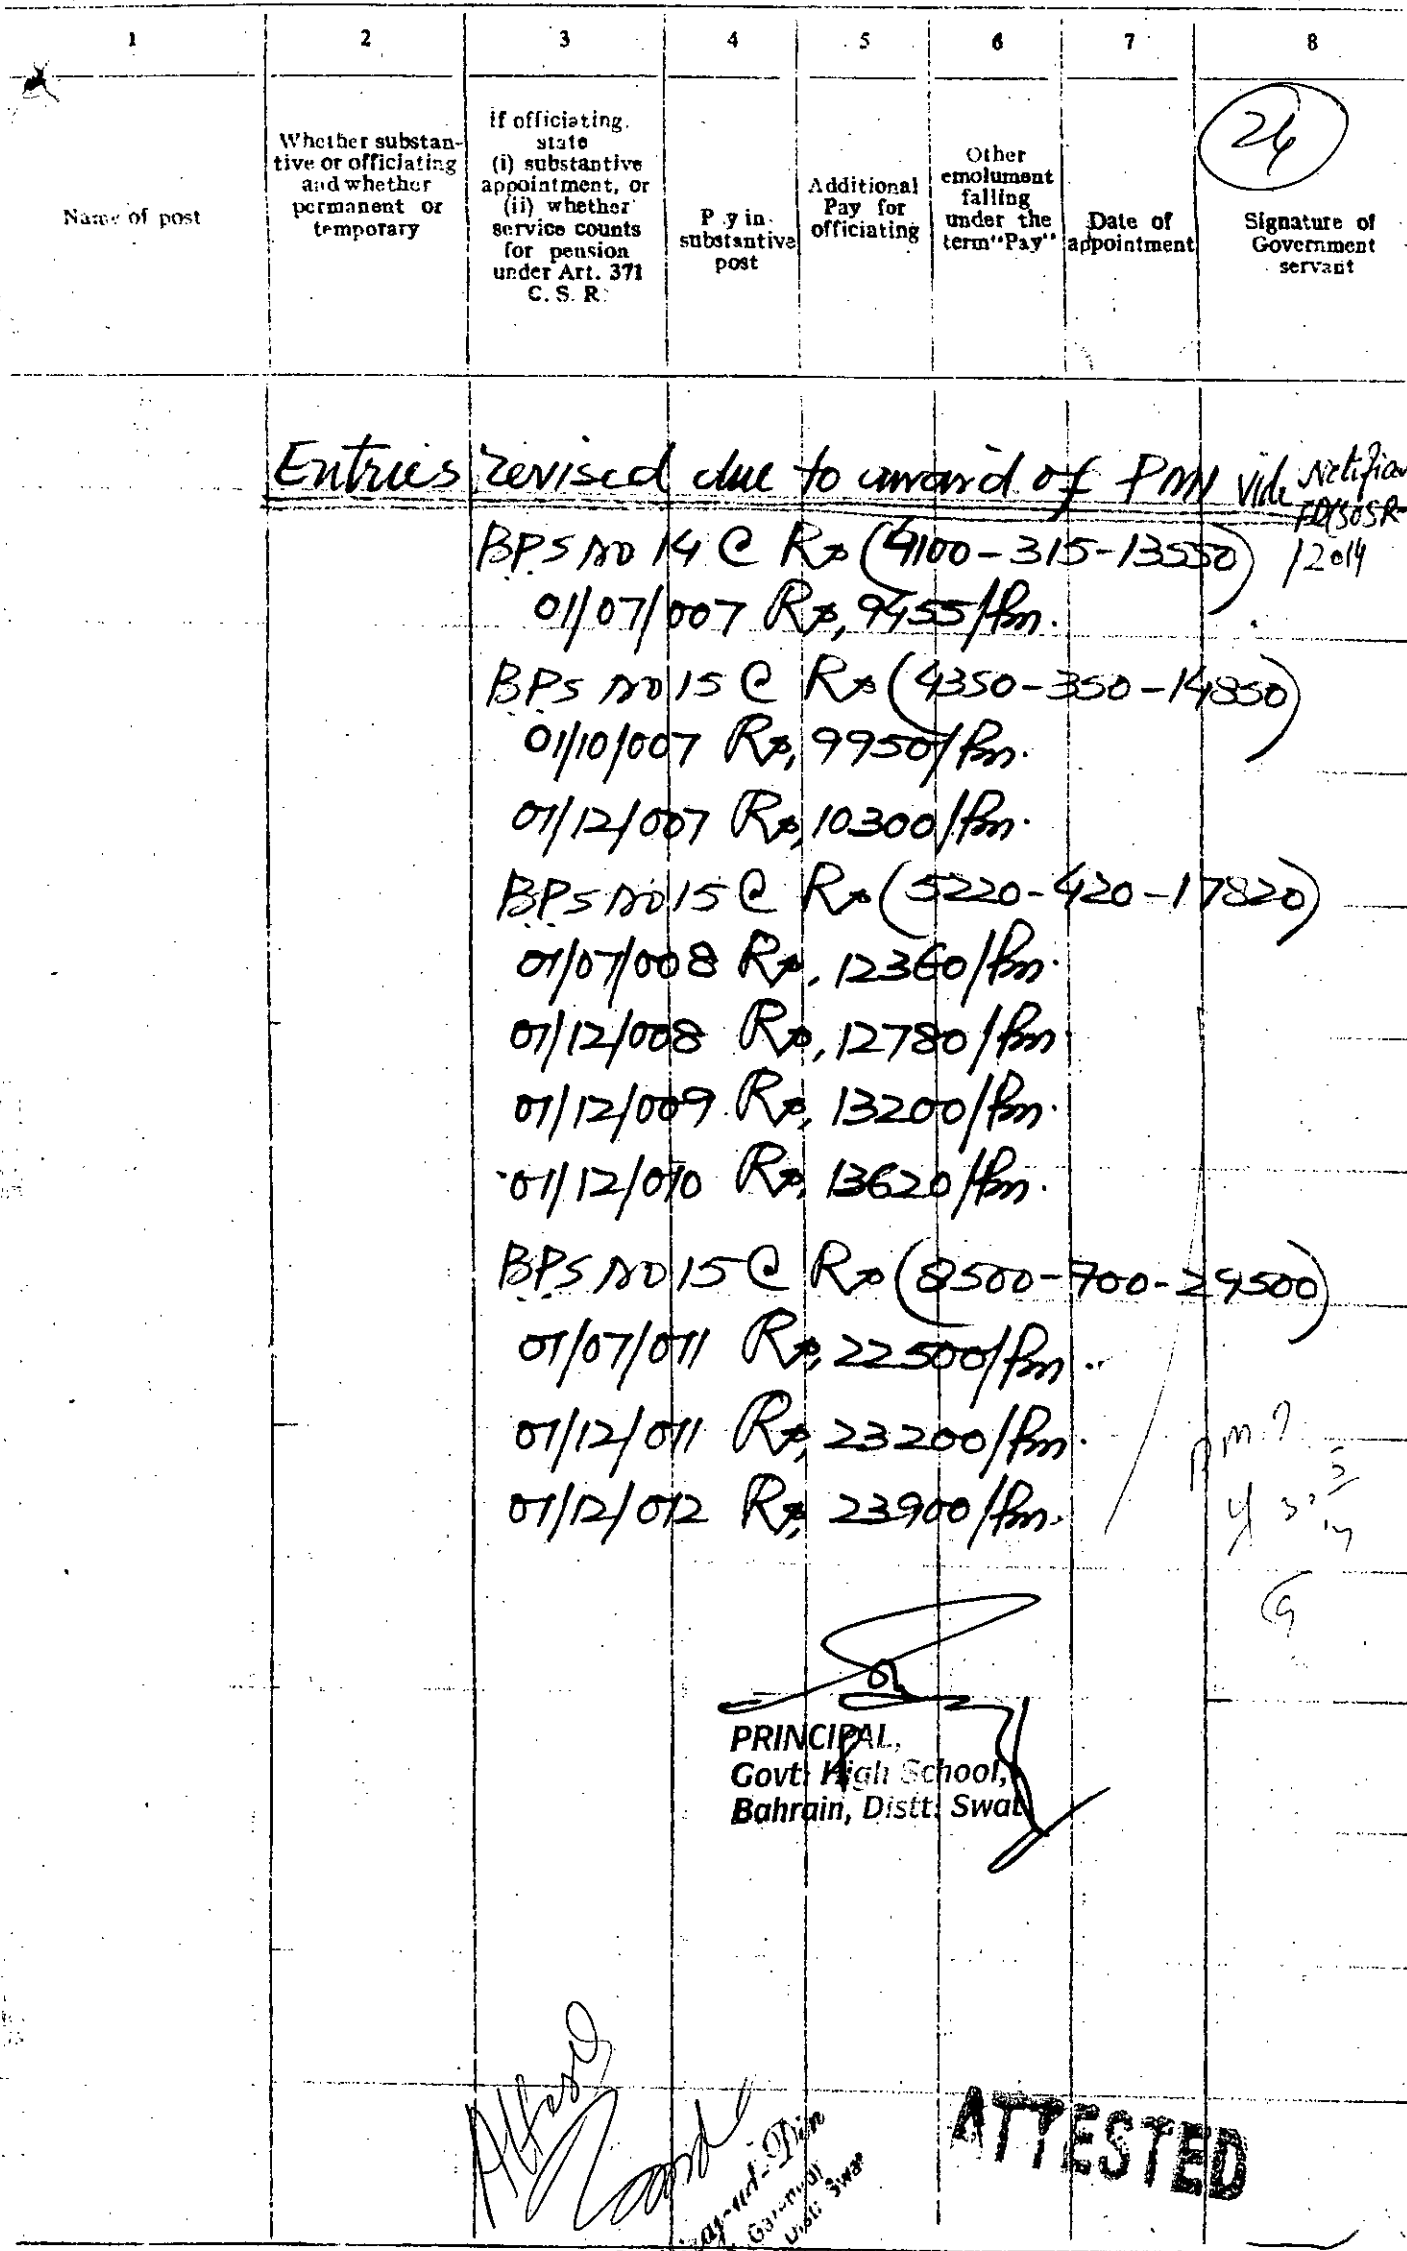 1 2 3 4 5 6 7 8
Name of post
Whether substan-
tive or officiating
and whether
permanent or
temporary
if officiating.
state
(i) substantive
appointment, or
(ii) whether
service counts
for pension
under Art. 371
C. S. R.
P y in
substantive
post
Additional
Pay for
officiating
Other
emolument
falling
under the
term "Pay"
Date of
appointment
24
Signature of
Government
servant
Entries revised due to award of PM vide
/2014
BPS No 14 @ Rs (4100-315-13550)
01/07/007 Rs, 9455/Pm.
BPS No 15 @ Rs (4350-350-14850)
01/10/007 Rs, 9950/Pm.
01/12/007 Rs, 10300/Pm.
BPS No 15 @ Rs (5220-420-17820)
01/07/008 Rs, 12360/Pm.
01/12/008 Rs, 12780/Pm.
01/12/009 Rs, 13200/Pm.
01/12/010 Rs, 13620/Pm.
BPS No 15 @ Rs (8500-700-29500)
01/07/011 Rs, 22500/Pm.
01/12/011 Rs, 23200/Pm.
01/12/012 Rs, 23900/Pm.
PRINCIPAL,
Govt: High School,
Bahrain, Distt: Swat
Attested
ATTESTED